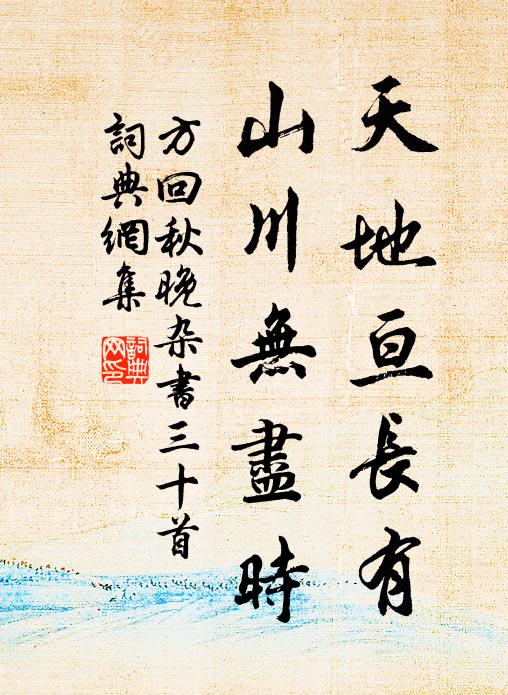 天地亘長有
山川無盡時
方回秋晚杂書三十首
詞典網集
詞典网印